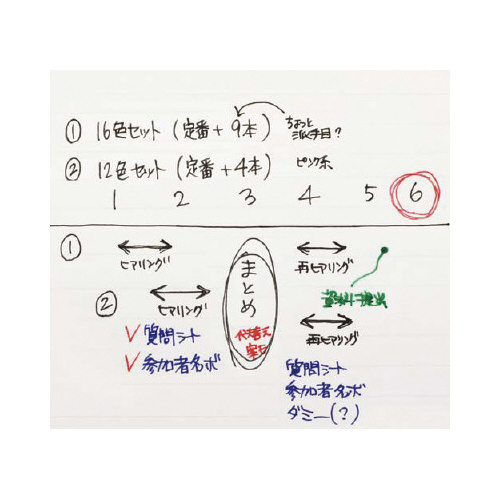 ① 16色セット（定番＋9本）
ちょっと
派手目？
② 12色セット（定番＋4本） ピンク系
1 2 3 4 5 6
① ヒアリング まとめ 再ヒアリング
② ヒアリング 再ヒアリング
✓質問シート
✓参加者名ボ
質問シート
参加者名ボ
ダミー（？）